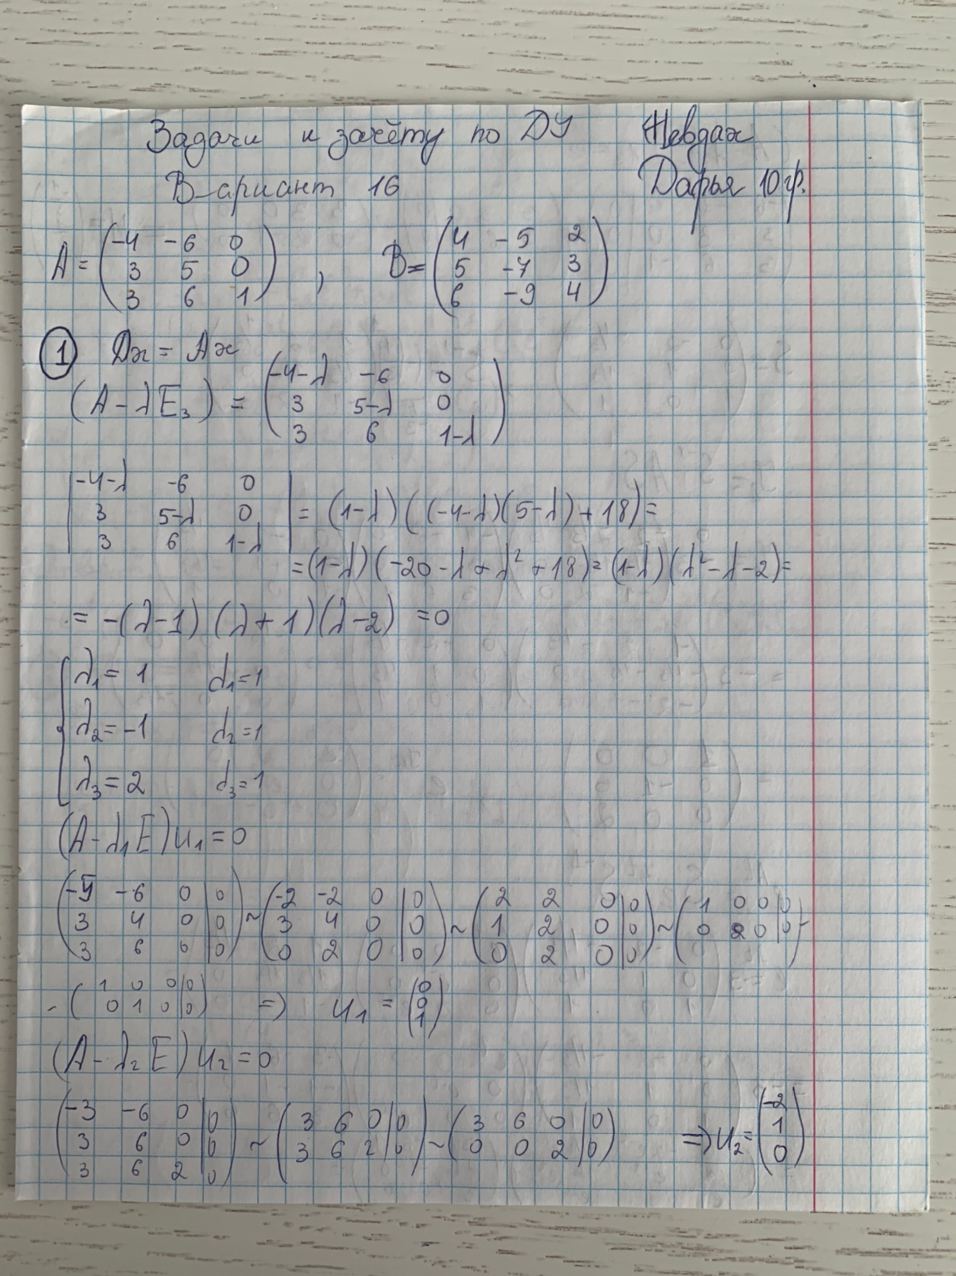 Задачи к зачёту по ДУ Невдах
Вариант 16 Дарья 10 гр.
A = (-4 -6 0; 3 5 0; 3 6 1), B = (4 -5 2; 5 -7 3; 6 -9 4)
① Dx = Ax
(A - λE₃) = (-4-λ -6 0; 3 5-λ 0; 3 6 1-λ)
|-4-λ -6 0; 3 5-λ 0; 3 6 1-λ| = (1-λ)((-4-λ)(5-λ)+18) =
= (1-λ)(-20-λ+λ²+18) = (1-λ)(λ²-λ-2) =
= -(λ-1)(λ+1)(λ-2) = 0
{ λ₁ = 1 d₁ = 1
λ₂ = -1 d₂ = 1
λ₃ = 2 d₃ = 1
(A-λ₁E)u₁ = 0
(-5 -6 0|0; 3 4 0|0; 3 6 0|0) ~ (-2 -2 0|0; 3 4 0|0; 0 2 0|0) ~ (2 2 0|0; 1 2 0|0; 0 2 0|0) ~ (1 0 0|0; 0 2 0|0) -
- (1 0 0|0; 0 1 0|0) ⇒ u₁ = (0; 0; 1)
(A-λ₂E)u₂ = 0
(-3 -6 0|0; 3 6 0|0; 3 6 2|0) ~ (3 6 0|0; 3 6 2|0) ~ (3 6 0|0; 0 0 2|0) ⇒ u₂ = (-2; 1; 0)